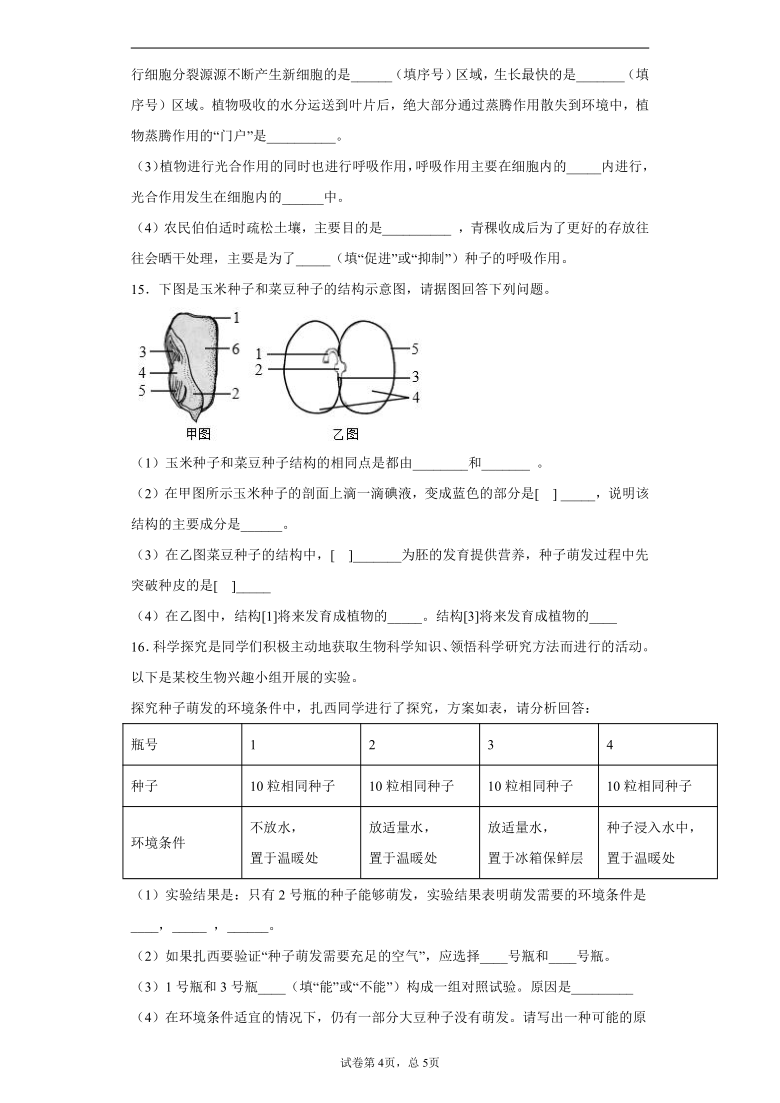 行细胞分裂源源不断产生新细胞的是______（填序号）区域，生长最快的是_______（填
序号）区域。植物吸收的水分运送到叶片后，绝大部分通过蒸腾作用散失到环境中，植
物蒸腾作用的“门户”是__________。
（3）植物进行光合作用的同时也进行呼吸作用，呼吸作用主要在细胞内的_____内进行，
光合作用发生在细胞内的______中。
（4）农民伯伯适时疏松土壤，主要目的是__________ ，青稞收成后为了更好的存放往
往会晒干处理，主要是为了_____（填“促进”或“抑制”）种子的呼吸作用。
15．下图是玉米种子和菜豆种子的结构示意图，请据图回答下列问题。
1
6
3
4
5
2
甲图
1
2
5
3
4
乙图
（1）玉米种子和菜豆种子结构的相同点是都由________和_______ 。
（2）在甲图所示玉米种子的剖面上滴一滴碘液，变成蓝色的部分是[　] _____，说明该
结构的主要成分是______。
（3）在乙图菜豆种子的结构中，[　]_______为胚的发育提供营养，种子萌发过程中先
突破种皮的是[　]_____
（4）在乙图中，结构[1]将来发育成植物的_____。结构[3]将来发育成植物的____
16．科学探究是同学们积极主动地获取生物科学知识、领悟科学研究方法而进行的活动。
以下是某校生物兴趣小组开展的实验。
探究种子萌发的环境条件中，扎西同学进行了探究，方案如表，请分析回答：
瓶号 1 2 3 4
种子 10 粒相同种子 10 粒相同种子 10 粒相同种子 10 粒相同种子
环境条件 不放水， 放适量水， 放适量水， 种子浸入水中，
置于温暖处 置于温暖处 置于冰箱保鲜层 置于温暖处
（1）实验结果是：只有 2 号瓶的种子能够萌发，实验结果表明萌发需要的环境条件是
____，_____ ，______。
（2）如果扎西要验证“种子萌发需要充足的空气”，应选择____号瓶和____号瓶。
（3）1 号瓶和 3 号瓶____（填“能”或“不能”）构成一组对照试验。原因是_________
（4）在环境条件适宜的情况下，仍有一部分大豆种子没有萌发。请写出一种可能的原
试卷第 4页，总 5页